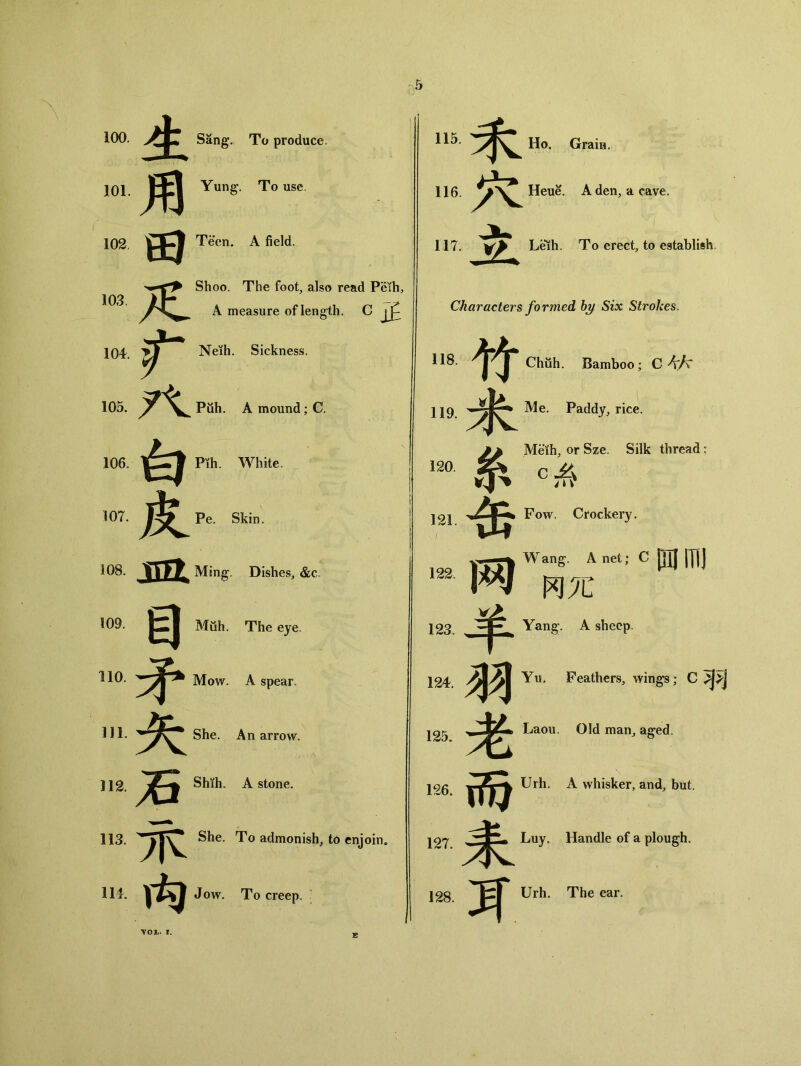 5
100. 生 Săng. To produce.
101. 用 Yung. To use.
102. 田 Tëen. A field.
103. 疋 Shoo. The foot, also read Peïh,
A measure of length. C 𤴓
104. 疒 Neïh. Sickness.
105. 癶 Pŭh. A mound; C.
106. 白 Pïh. White.
107. 皮 Pe. Skin.
108. 皿 Ming. Dishes, &c.
109. 目 Mŭh. The eye.
110. 矛 Mow. A spear.
111. 矢 She. An arrow.
112. 石 Shïh. A stone.
113. 示 She. To admonish, to enjoin.
114. 禸 Jow. To creep.
115. 禾 Ho. Grain.
116. 穴 Heuĕ. A den, a cave.
117. 立 Leïh. To erect, to establish.
Characters formed by Six Strokes.
118. 竹 Chŭh. Bamboo; C ⺮
119. 米 Me. Paddy, rice.
120. 糸 Meïh, or Sze. Silk thread;
C 糹
121. 缶 Fow. Crockery.
122. 网 Wang. A net; C 罒
123. 羊 Yang. A sheep.
124. 羽 Yu. Feathers, wings; C 羽
125. 老 Laou. Old man, aged.
126. 而 Urh. A whisker, and, but.
127. 耒 Luy. Handle of a plough.
128. 耳 Urh. The ear.
VOL. I.
E